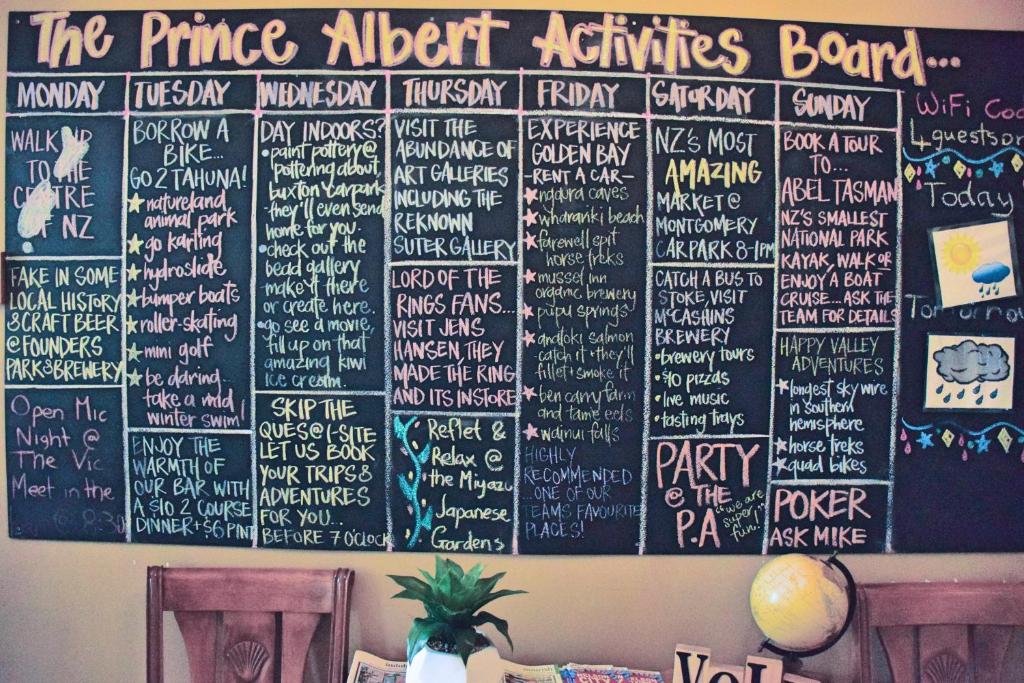 The Prince Albert Activities Board...
MONDAY
WALK UP
TO THE
CENTRE
OF NZ
TAKE IN SOME
LOCAL HISTORY
& CRAFT BEER
@ FOUNDERS
PARK & BREWERY
Open Mic
Night @
The Vic
Meet in the
TUESDAY
BORROW A
BIKE...
GO 2 TAHUNA!
natureland
animal park
go karting
hydroslide
bumper boats
roller-skating
mini golf
be daring...
take a mid
winter swim!
ENJOY THE
WARMTH OF
OUR BAR WITH
A $10 2 COURSE
DINNER + $6 PINT
WEDNESDAY
DAY INDOORS?
• paint pottery @
pottering about
buxton carpark
they'll even send
home for you.
• check out the
bead gallery
make it there
or create here.
• go see a movie,
fill up on that
amazing kiwi
ice cream.
SKIP THE
QUES @ I-SITE
LET US BOOK
YOUR TRIPS &
ADVENTURES
FOR YOU...
BEFORE 7 O'CLOCK
THURSDAY
VISIT THE
ABUNDANCE OF
ART GALLERIES
INCLUDING THE
REKNOWN
SUTER GALLERY
LORD OF THE
RINGS FANS...
VISIT JENS
HANSEN THEY
MADE THE RING
AND ITS INSTORE
Reflet &
Relax @
the Miyazu
Japanese
Gardens
FRIDAY
EXPERIENCE
GOLDEN BAY
-RENT A CAR-
ngarua caves
wharariki beach
farewell spit
horse treks
mussel inn
organic brewery
pupu springs
anatoki salmon
catch it + they'll
fillet + smoke it
ben carry farm
and tame eels
wainui falls
HIGHLY
RECOMMENDED
...ONE OF OUR
TEAMS FAVOURITE
PLACES!
SATURDAY
NZ'S MOST
AMAZING
MARKET @
MONTGOMERY
CAR PARK 8-1PM
CATCH A BUS TO
STOKE, VISIT
McCASHINS
BREWERY
• brewery tours
• $10 pizzas
• live music
• tasting trays
PARTY
@ THE
P.A
"we are
super
fun..."
SUNDAY
BOOK A TOUR
TO...
ABEL TASMAN
NZ'S SMALLEST
NATIONAL PARK
KAYAK, WALK OR
ENJOY A BOAT
CRUISE.... ASK THE
TEAM FOR DETAILS
HAPPY VALLEY
ADVENTURES
longest sky wire
in southern
hemisphere
horse treks
quad bikes
POKER
ASK MIKE
WiFi Cod
4guestson
Today
Tomorrow
VOL